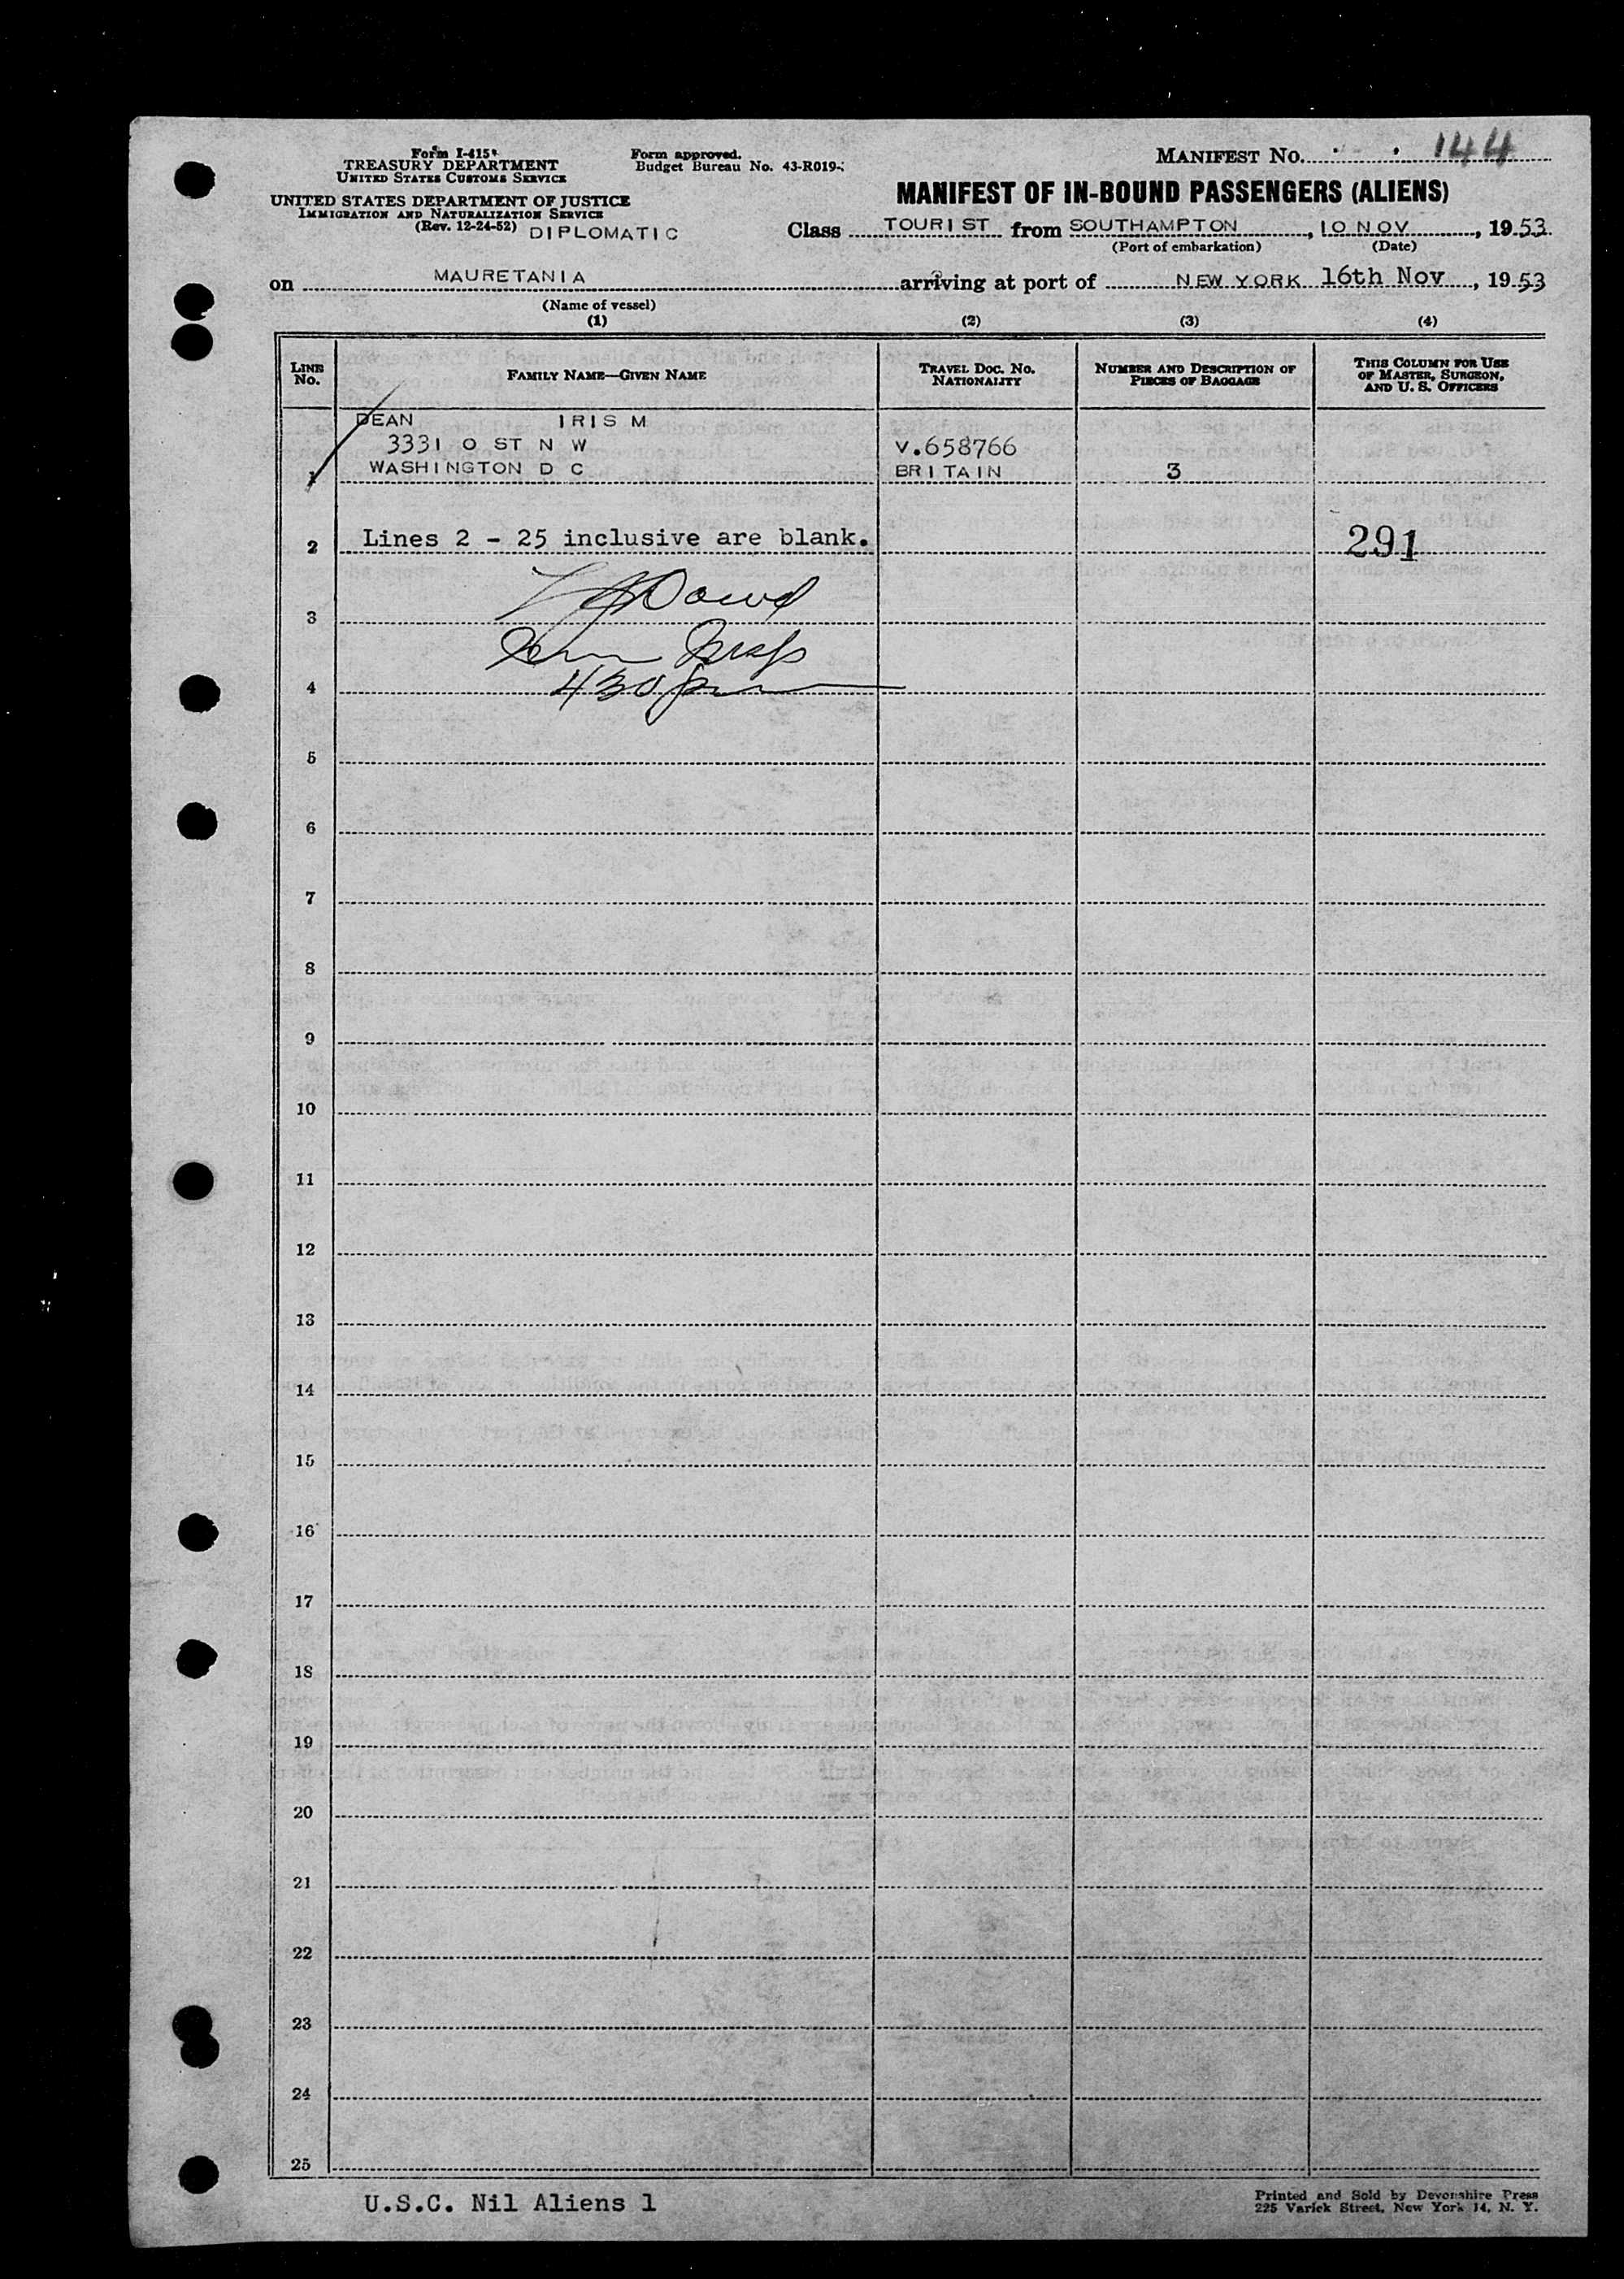 Form I-415
TREASURY DEPARTMENT
UNITED STATES CUSTOMS SERVICE
UNITED STATES DEPARTMENT OF JUSTICE
IMMIGRATION AND NATURALIZATION SERVICE
(Rev. 12-24-52) DIPLOMATIC
Form approved.
Budget Bureau No. 43-R019-
MANIFEST NO. 144
MANIFEST OF IN-BOUND PASSENGERS (ALIENS)
Class TOURIST from SOUTHAMPTON, 10 NOV, 1953
(Port of embarkation) (Date)
on MAURETANIA arriving at port of NEW YORK 16th Nov, 1953
(Name of vessel)
(1) (2) (3) (4)
LINE NO. FAMILY NAME—GIVEN NAME TRAVEL DOC. NO. NATIONALITY NUMBER AND DESCRIPTION OF PIECES OF BAGGAGE THIS COLUMN FOR USE OF MASTER, SURGEON, AND U. S. OFFICERS
DEAN IRIS M
3331 O ST N W V.658766
1 WASHINGTON D C BRITAIN 3
2 Lines 2 - 25 inclusive are blank. 291
3
4 430 pm
5
6
7
8
9
10
11
12
13
14
15
16
17
18
19
20
21
22
23
24
25
U.S.C. Nil Aliens 1
Printed and Sold by Devonshire Press
225 Varick Street, New York 14, N. Y.